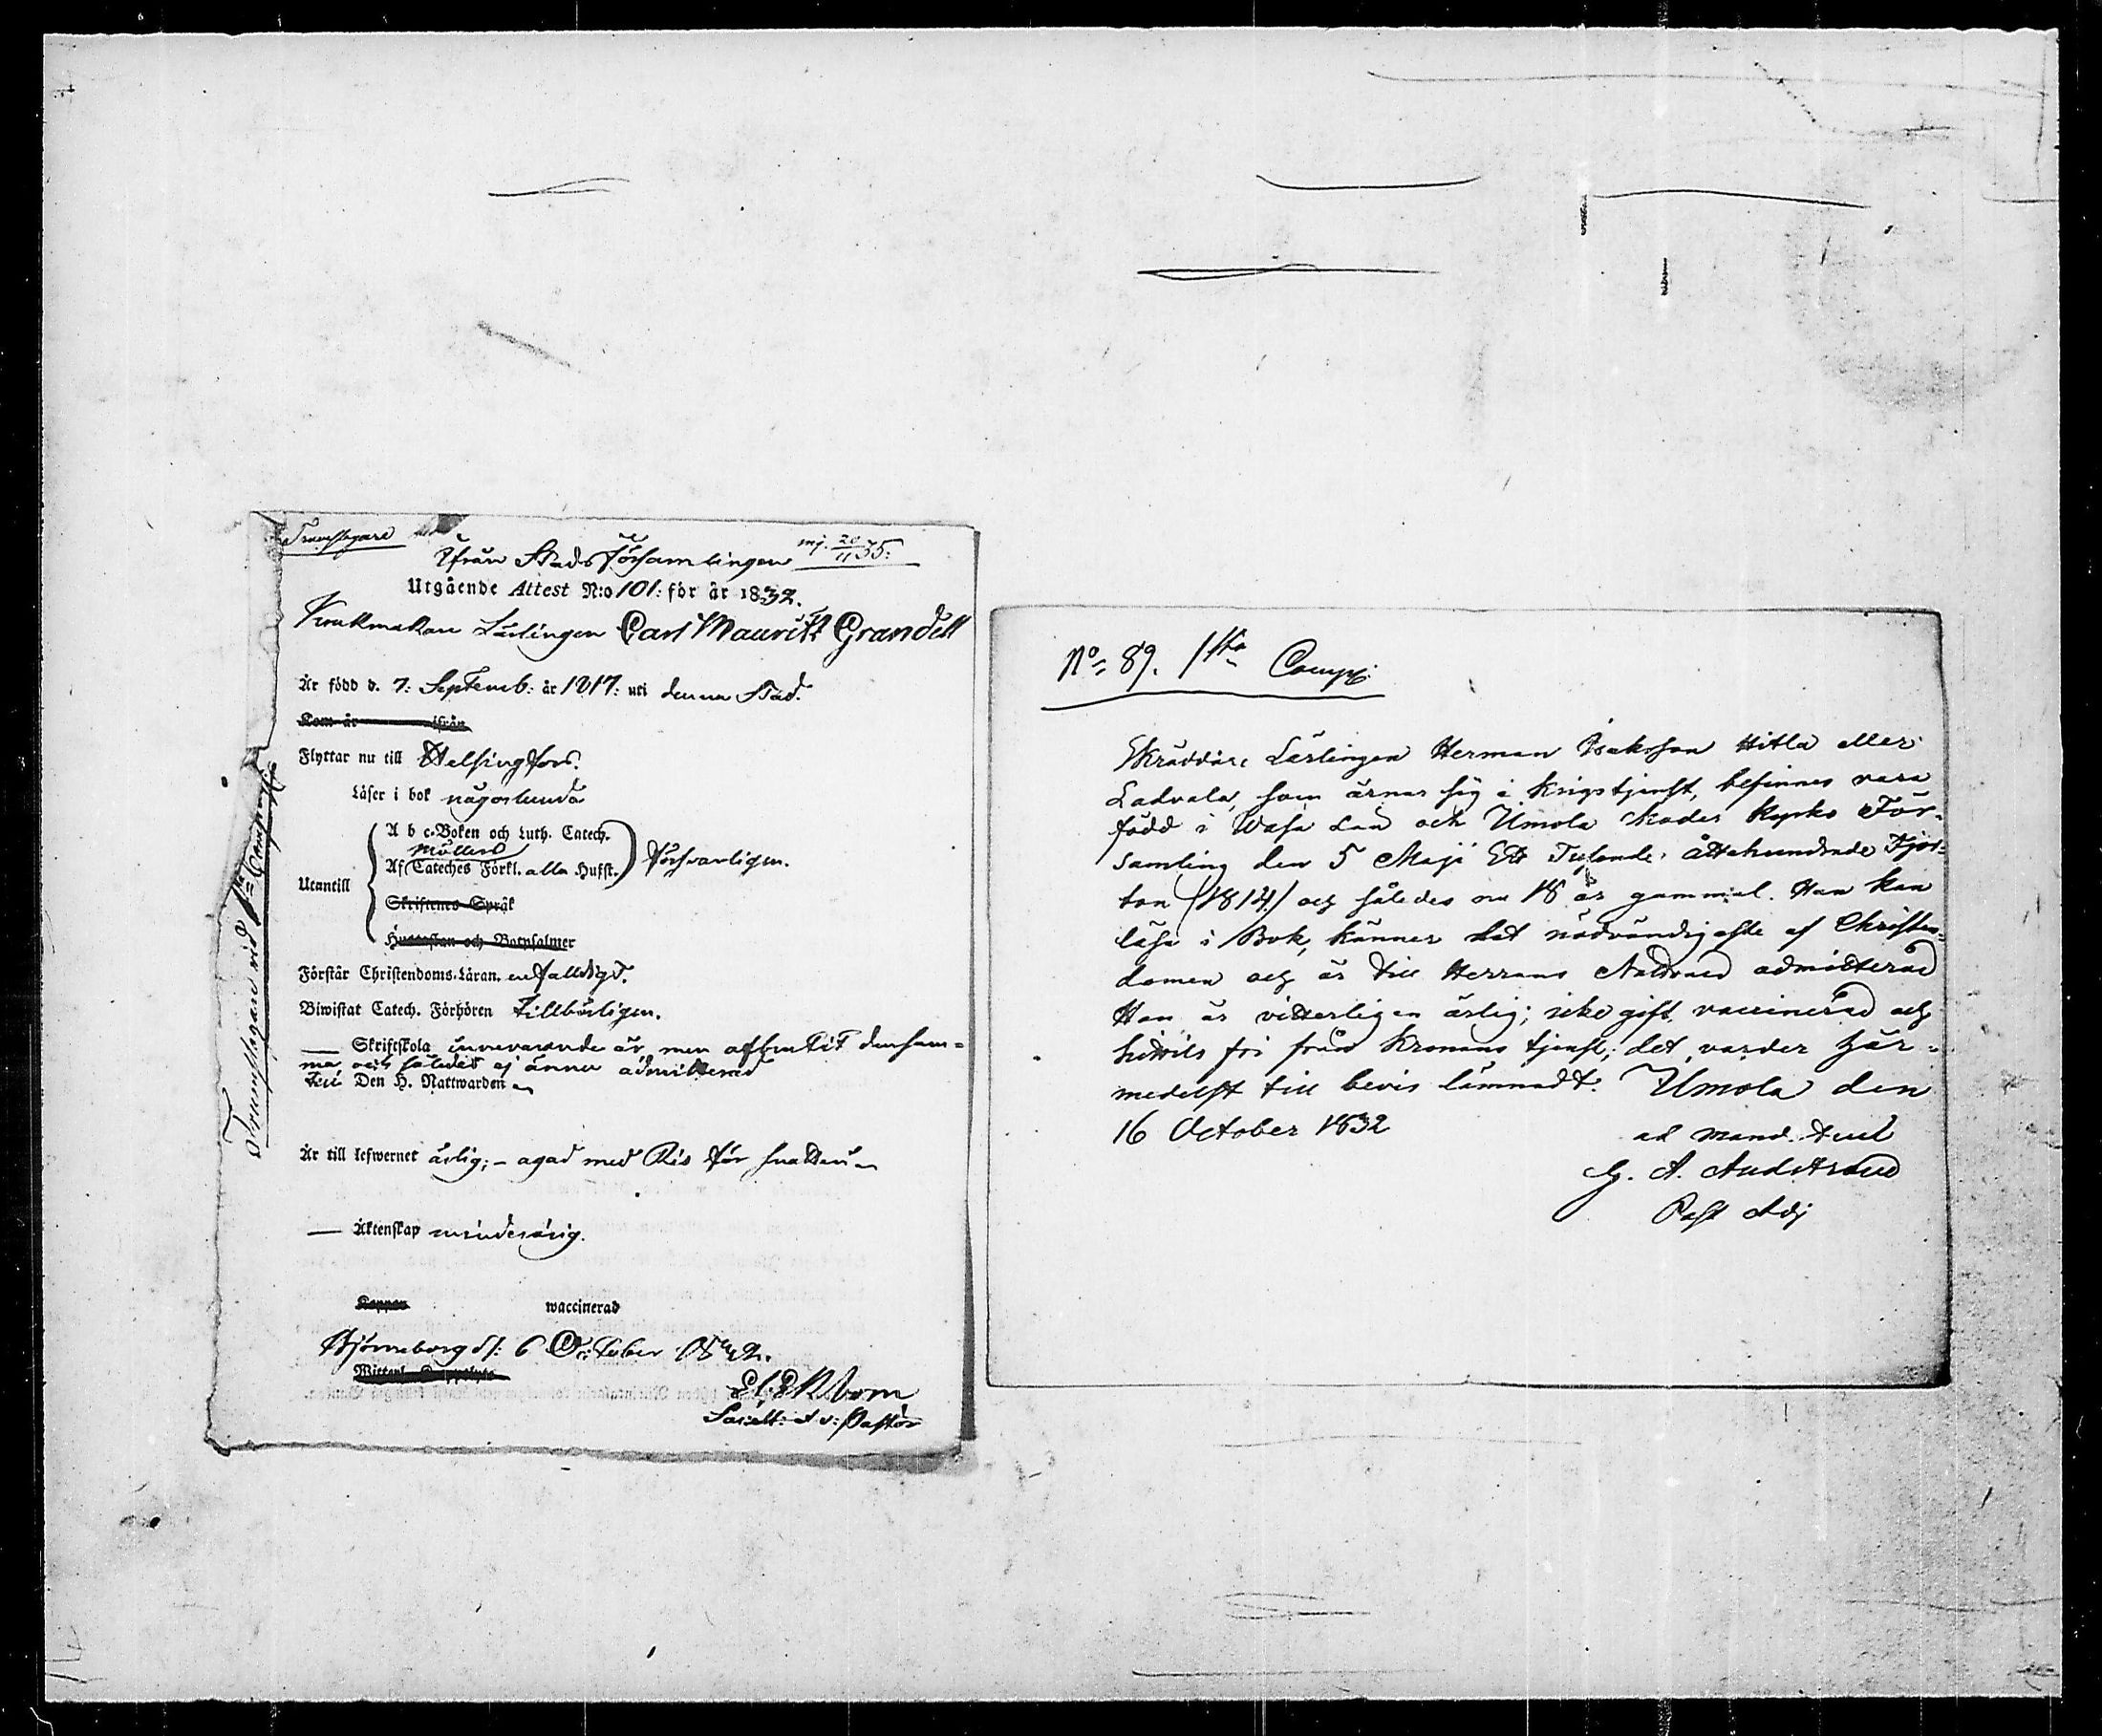 Trumslagare
mj. 20/11 35.
Ifrån Stads Församlingen
Utgående Attest N:o 101: för år 1832.
Krukmakare Lärlingen Carl Mauritz Grandell
Är född d. 7: Septemb: år 1817: uti denna Stad.
Kom år ifrån
Flyttar nu till Helsingfors.
Läser i bok någorlunda
A b c-Boken och Luth. Catech.
Möllers
Af Cateches Förkl. alla Husst. försvarligen.
Utantill
Skriftenes Språk
Hustaflan och Botpsalmer
Förstår Christendoms-Läran. enfalldigt.
Biwistat Catech. Förhören tillbörligen.
— Skriftskola innevarande år, men afbrutit densam=
ma, och således ej ännu admitterad
till Den H. Nattwarden
Är till lefwernet ärlig; - agad med Ris för snatteri
— Äktenskap minderårig.
Koppor waccinerad
Björneborg d: 6 October 1832.
Trumslagare vid 1sta Compagnie
N:o 89. 1sta Comp:
Skräddare Lärlingen Herman Isaksson Hitla eller
Ladvala, som ärnar sig i krigstjenst, befinnes vara
född i Wasa Län och Ilmola Moder Kyrko För-
samling den 5 Maji Ett Tusende åttahundrade Fjor-
ton (1814) och således nu 18 år gammal. Han kan
läsa i Bok, känner det nödvändigaste af Christen-
domen och är till Herrans Nattvard admitterad
Han är vitterligen ärlig; icke gift, vaccinerad och
hittils fri från Kronans tjenst; det varder här-
medelst till bevis lämnadt. Ilmola den
16 October 1832
ad mand.
G. A.
Past Adj